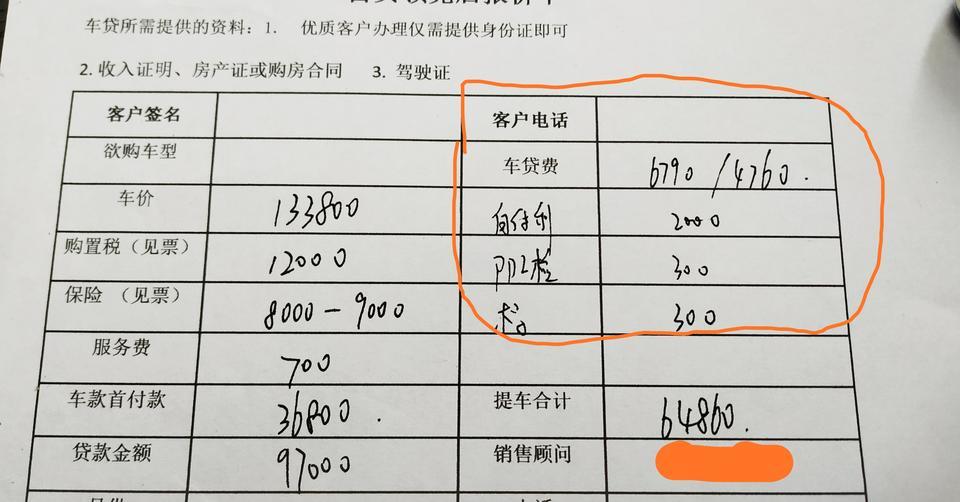 车贷所需提供的资料：1. 优质客户办理仅需提供身份证即可
2. 收入证明、房产证或购房合同 3. 驾驶证
客户签名 客户电话
欲购车型 车贷费 6790 / 4760.
车价 133800 2000
购置税（见票） 12000 300
保险 （见票） 8000-9000 300
服务费 700
车款首付款 36800. 提车合计 64860.
贷款金额 97000 销售顾问